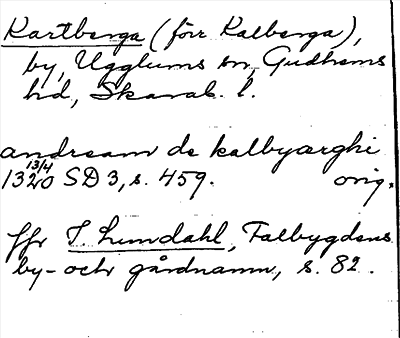 Kartberga (förr Kalberga),
by, Ugglums sn, Gudhems
hd, Skarab. l.
andream de kalbyærghi
13/4
1320 SD 3, s. 459. orig.
Jfr I. Lundahl, Falbygdens
by- och gårdnamn, s. 82.